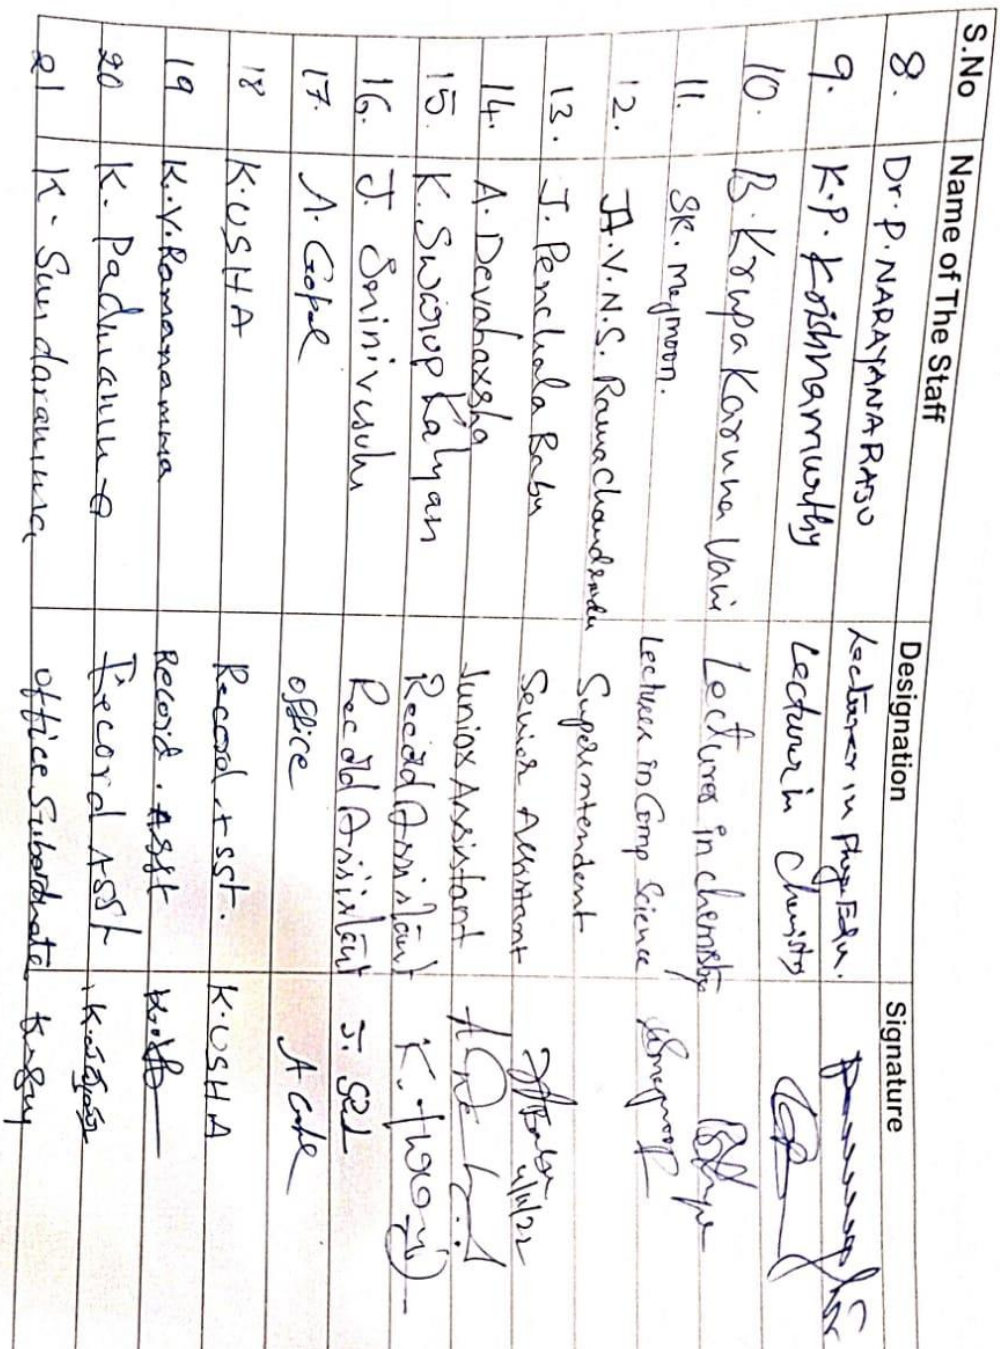 S.No Name of The Staff Designation Signature
8. Dr. P. NARAYANA RAJU Lecturer in Phy. Edn.
9. K.P. Krishnamurthy Lecturer in Chemistry
10. B. Krupa Karuna Vani Lecturer in chemistry
11. SK. Meymoon. Lecturer in Comp Science
12. A.V.N.S. Ramachandrudu Superintendent
13. J. Penchala Babu Senior Assistant 4/11/22
14. A. Devaharsha Junior Assistant
15. K. Swarup Kalyan Record Assistant
16. J. Srinivasulu Record Assistant
17. A. Gopal office
18 K. USHA Record Asst. K. USHA
19 K.V. Ramanamma Record. Asst
20 K. Padmamma Record Asst
21 K. Sundaramma office Subordinate